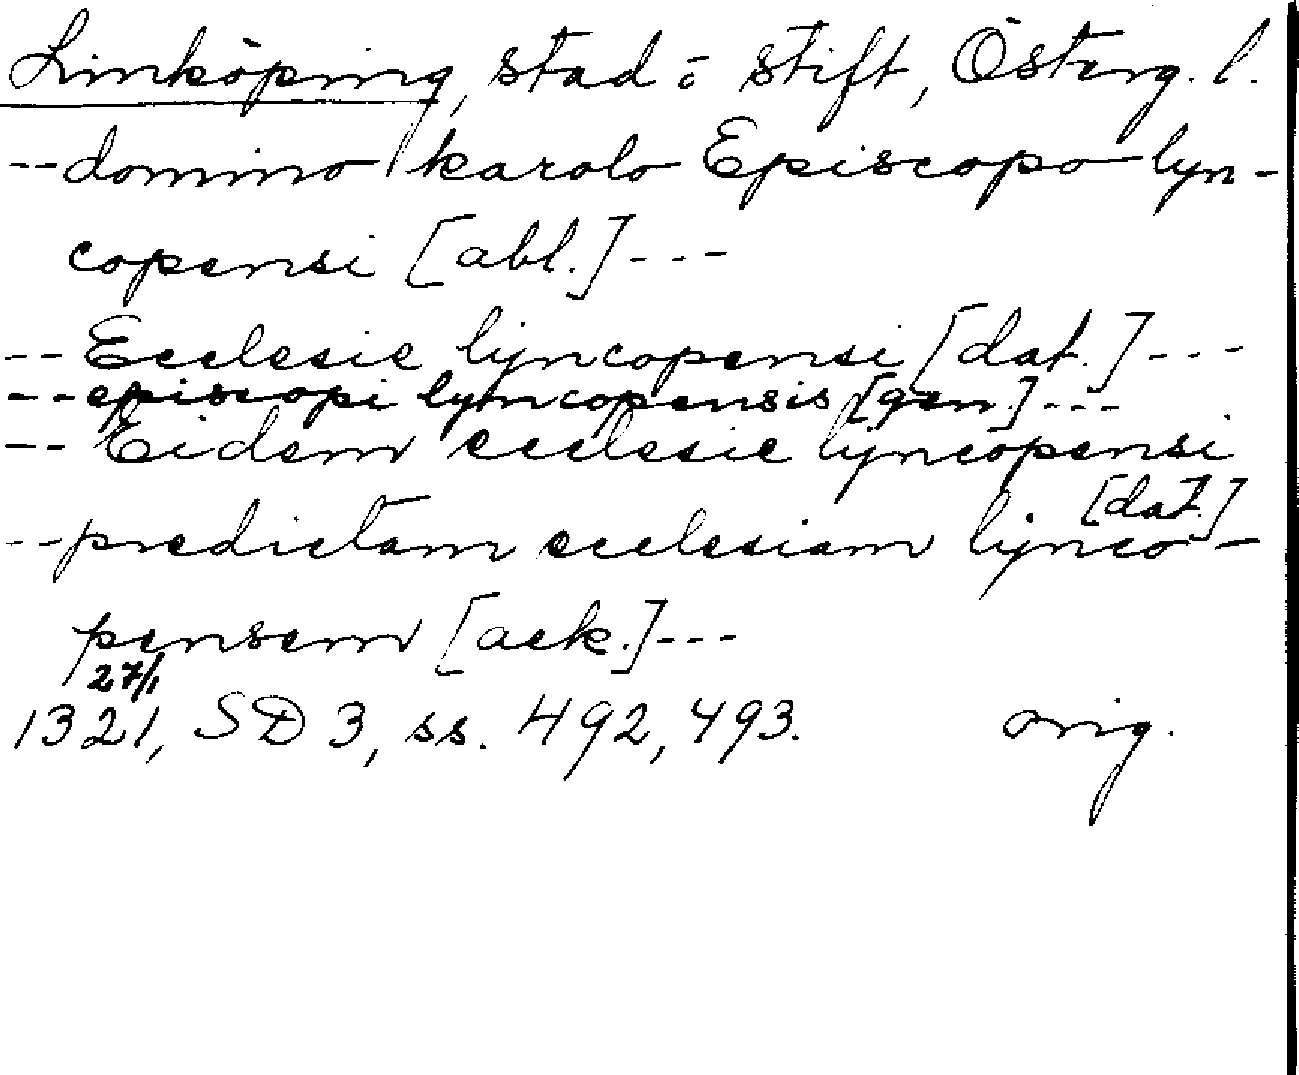 Linköping, stad o stift, Österg. l.
-- domino karolo Episcopo lyn-
copensi [abl.] ---
-- Ecclesie lyncopensi [dat.] ---
-- episcopi lyncopensis [gen] ---
-- Eidem ecclesie lyncopensi
[dat.]
-- predictam ecclesiam lynco-
pensem [ack.] ---
27/1
1321, SD 3, ss. 492, 493. orig.